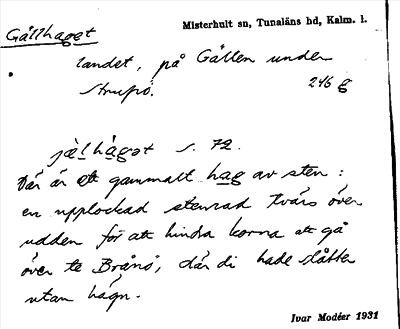 Gällhaget
Misterhult sn, Tunaläns hd, Kalm. l.
landet, på Gällen under
Strupö.
246 g
jælhàgət s. 72.
Där är ett gammalt hag av sten:
en upplockad stenrad tvärs över
udden för att hindra korna att gå
över te Brånö, där di hade slåtter
utan hägn.
Ivar Modéer 1931